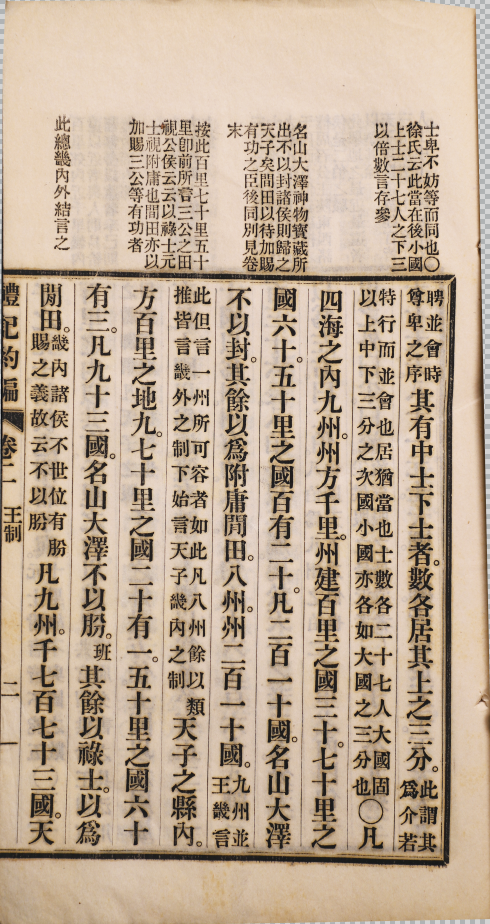 士卑不妨等而同也〇
徐氏云此當在後小國
上士二十七人之下三
以倍數言存參
名山大澤神物寶藏所
出不以封諸侯則歸之
天子矣閒田以待加賜
有功之臣後同別見卷
末
按此百里七十里五十
里卽前所言三公之田
視公侯云云以祿士元
士視附庸也閒田亦以
加賜三公等有功者
此總畿內外結言之
聘並會時
尊卑之序其有中士下士者數各居其上之三分此謂其
為介若
特行而並會也居猶當也士數各二十七人大國固
以上中下三分之次國小國亦各如大國之三分也〇凡
四海之內九州州方千里州建百里之國三十七十里之
國六十五十里之國百有二十凡二百一十國名山大澤
不以封其餘以為附庸閒田八州州二百一十國九州並
王畿言
此但言一州所可容者如此凡八州餘以類
推皆言畿外之制下始言天子畿內之制天子之縣內
方百里之地九七十里之國二十有一五十里之國六十
有三凡九十三國名山大澤不以朌班其餘以祿士以為
閒田畿內諸侯不世位有朌
賜之義故云不以朌凡九州千七百七十三國天
禮記約編 卷二 王制 二